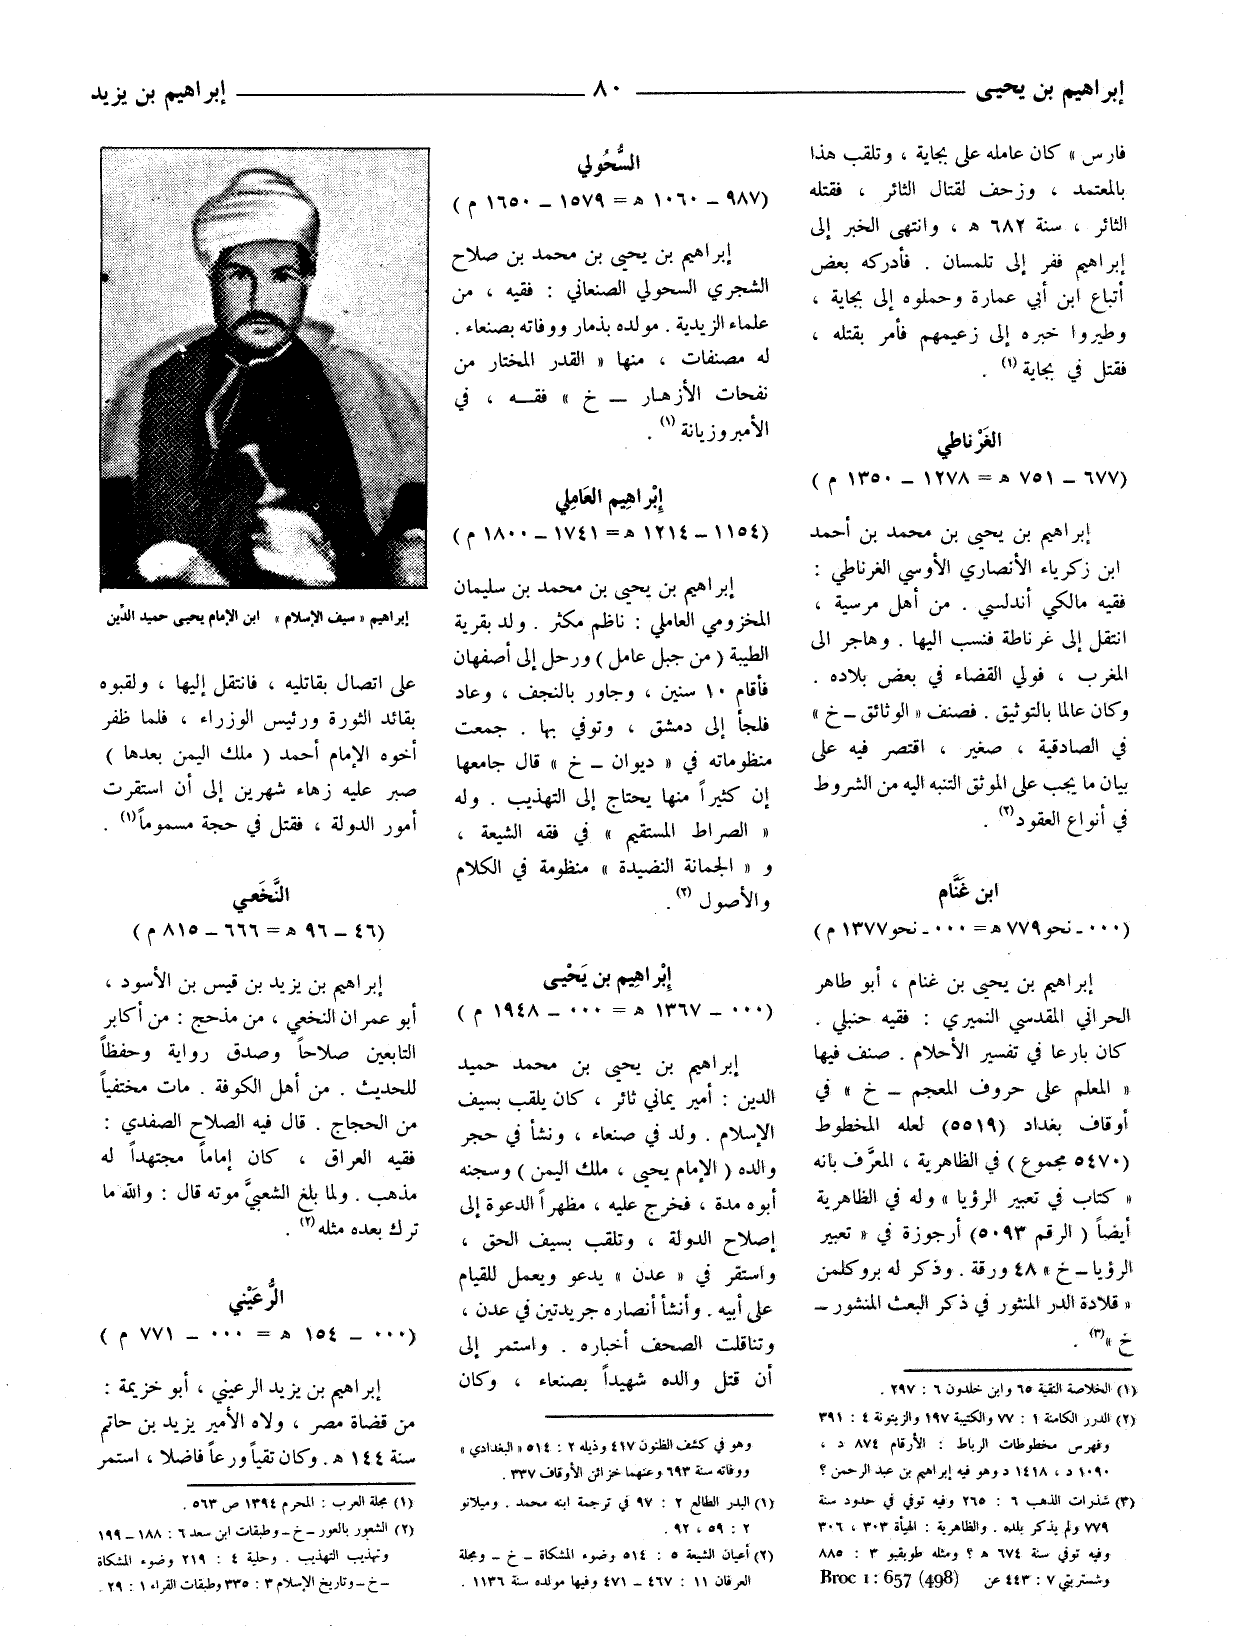 إبراهيم بن يحيى
٨٠
إبراهيم بن يزيد
فارس » كان عامله على بجاية ، وتلقب هذا
بالمعتمد ، وزحف لقتال الثائر ، فقتله
الثائر ، سنة ٦٨٢ ه ، وانتهى الخبر إلى
إبراهيم ففر إلى تلمسان . فأدركه بعض
أتباع ابن أبي عمارة وحملوه إلى بجاية ،
وطيروا خبره إلى زعيمهم فأمر بقتله ،
فقتل في بجاية (١) .
الغَرْناطي
(٦٧٧ – ٧٥١ ه = ١٢٧٨ – ١٣٥٠ م )
إبراهيم بن يحيى بن محمد بن أحمد
ابن زكرياء الأنصاري الأوسي الغرناطي :
فقيه مالكي أندلسي . من أهل مرسية ،
انتقل إلى غرناطة فنسب اليها . وهاجر الى
المغرب ، فولي القضاء في بعض بلاده .
وكان عالما بالتوثيق . فصنف « الوثائق – خ »
في الصادقية ، صغير ، اقتصر فيه على
بيان ما يجب على الموثق التنبه اليه من الشروط
في أنواع العقود(٢) .
ابن غَنَّام
(٠٠٠ - نحو ٧٧٩ ه = ٠٠٠ - نحو ١٣٧٧ م )
إبراهيم بن يحيى بن غنام ، أبو طاهر
الحراني المقدسي النميري : فقيه حنبلي .
كان بارعا في تفسير الأحلام . صنف فيها
« المعلم على حروف المعجم – خ » في
أوقاف بغداد (٥٥١٩) لعله المخطوط
(٥٤٧٠ مجموع ) في الظاهرية ، المعرَّف بانه
« كتاب في تعبير الرؤيا » وله في الظاهرية
أيضاً ( الرقم ٥٠٩٣) أرجوزة في « تعبير
الرؤيا – خ » ٤٨ ورقة . وذكر له بروكلمن
« قلادة الدر المنثور في ذكر البعث المنشور –
خ »(٣) .
(١) الخلاصة النقية ٦٥ وابن خلدون ٦ : ٢٩٧ .
(٢) الدرر الكامنة ١ : ٧٧ والكتيبة ١٩٧ والزيتونة ٤ : ٣٩١
وفهرس مخطوطات الرباط : الأرقام ٨٧٤ د ،
١٠٩٠ د ، ١٤١٨ د وهو فيه إبراهيم بن عبد الرحمن ؟
(٣) شذرات الذهب ٦ : ٢٦٥ وفيه توفي في حدود سنة
٧٧٩ ولم يذكر بلده . والظاهرية : الهيأة ٣٠٣ ، ٣٠٦
وفيه توفي سنة ٦٧٤ ه ؟ ومثله طوبقبو ٣ : ٨٨٥
وشستربتي ٧ : ٤٤٣ عن Broc 1 : 657 (498)
السُّحُولي
(٩٨٧ – ١٠٦٠ ه = ١٥٧٩ – ١٦٥٠ م )
إبراهيم بن يحيى بن محمد بن صلاح
الشجري السحولي الصنعاني : فقيه ، من
علماء الزيدية . مولده بذمار ووفاته بصنعاء .
له مصنفات ، منها « القدر المختار من
نفحات الأزهار – خ » فقه ، في
الأمبروزيانة (١) .
إبْراهيم العَامِلي
(١١٥٤ – ١٢١٤ ه = ١٧٤١ – ١٨٠٠ م )
إبراهيم بن يحيى بن محمد بن سليمان
المخزومي العاملي : ناظم مكثر . ولد بقرية
الطيبة ( من جبل عامل ) ورحل إلى أصفهان
فأقام ١٠ سنين ، وجاور بالنجف ، وعاد
فلجأ إلى دمشق ، وتوفي بها . جمعت
منظوماته في « ديوان – خ » قال جامعها
إن كثيراً منها يحتاج إلى التهذيب . وله
« الصراط المستقيم » في فقه الشيعة ،
و « الجمانة النضيدة » منظومة في الكلام
والأصول (٢) .
إبْراهيم بن يَحْيى
(٠٠٠ – ١٣٦٧ ه = ٠٠٠ – ١٩٤٨ م )
إبراهيم بن يحيى بن محمد حميد
الدين : أمير يماني ثائر ، كان يلقب بسيف
الإسلام . ولد في صنعاء ، ونشأ في حجر
والده ( الإمام يحيى ، ملك اليمن ) وسجنه
أبوه مدة ، فخرج عليه ، مظهراً الدعوة إلى
إصلاح الدولة ، وتلقب بسيف الحق ،
واستقر في « عدن » يدعو ويعمل للقيام
على أبيه . وأنشأ أنصاره جريدتين في عدن ،
وتناقلت الصحف أخباره . واستمر إلى
أن قتل والده شهيداً بصنعاء ، وكان
وهو في كشف الظنون ٤١٧ وذيله ٢ : ٥١٤ « البغدادي »
ووفاته سنة ٦٩٣ وعنهما خزائن الأوقاف ٣٣٧ .
(١) البدر الطالع ٢ : ٩٧ في ترجمة ابنه محمد . وميلانو
٢ : ٥٩ ، ٩٢ .
(٢) أعيان الشيعة ٥ : ٥١٤ وضوء المشكاة – خ – ومجلة
العرفان ١١ : ٤٦٧ – ٤٧١ وفيها مولده سنة ١١٣٦ .
إبراهيم « سيف الإسلام » ابن الإمام يحيى حميد الدِّين
على اتصال بقاتليه ، فانتقل إليها ، ولقبوه
بقائد الثورة ورئيس الوزراء ، فلما ظفر
أخوه الإمام أحمد ( ملك اليمن بعدها )
صبر عليه زهاء شهرين إلى أن استقرت
أمور الدولة ، فقتل في حجة مسموماً(١) .
النَّخَعي
(٤٦ – ٩٦ ه = ٦٦٦ – ٨١٥ م )
إبراهيم بن يزيد بن قيس بن الأسود ،
أبو عمران النخعي ، من مذحج : من أكابر
التابعين صلاحاً وصدق رواية وحفظاً
للحديث . من أهل الكوفة . مات مختفياً
من الحجاج . قال فيه الصلاح الصفدي :
فقيه العراق ، كان إماماً مجتهداً له
مذهب . ولما بلغ الشعبيَّ موته قال : والله ما
ترك بعده مثله(٢) .
الرُّعَيْني
(٠٠٠ – ١٥٤ ه = ٠٠٠ – ٧٧١ م )
إبراهيم بن يزيد الرعيني ، أبو خزيمة :
من قضاة مصر ، ولاه الأمير يزيد بن حاتم
سنة ١٤٤ ه . وكان تقياً ورعاً فاضلا ، استمر
(١) مجلة العرب : المحرم ١٣٩٤ ص ٥٦٣ .
(٢) الشعور بالعور – خ – وطبقات ابن سعد ٦ : ١٨٨ – ١٩٩
وتهذيب التهذيب . وحلية ٤ : ٢١٩ وضوء المشكاة
– خ – وتاريخ الإسلام ٣ : ٣٣٥ وطبقات القراء ١ : ٢٩ .